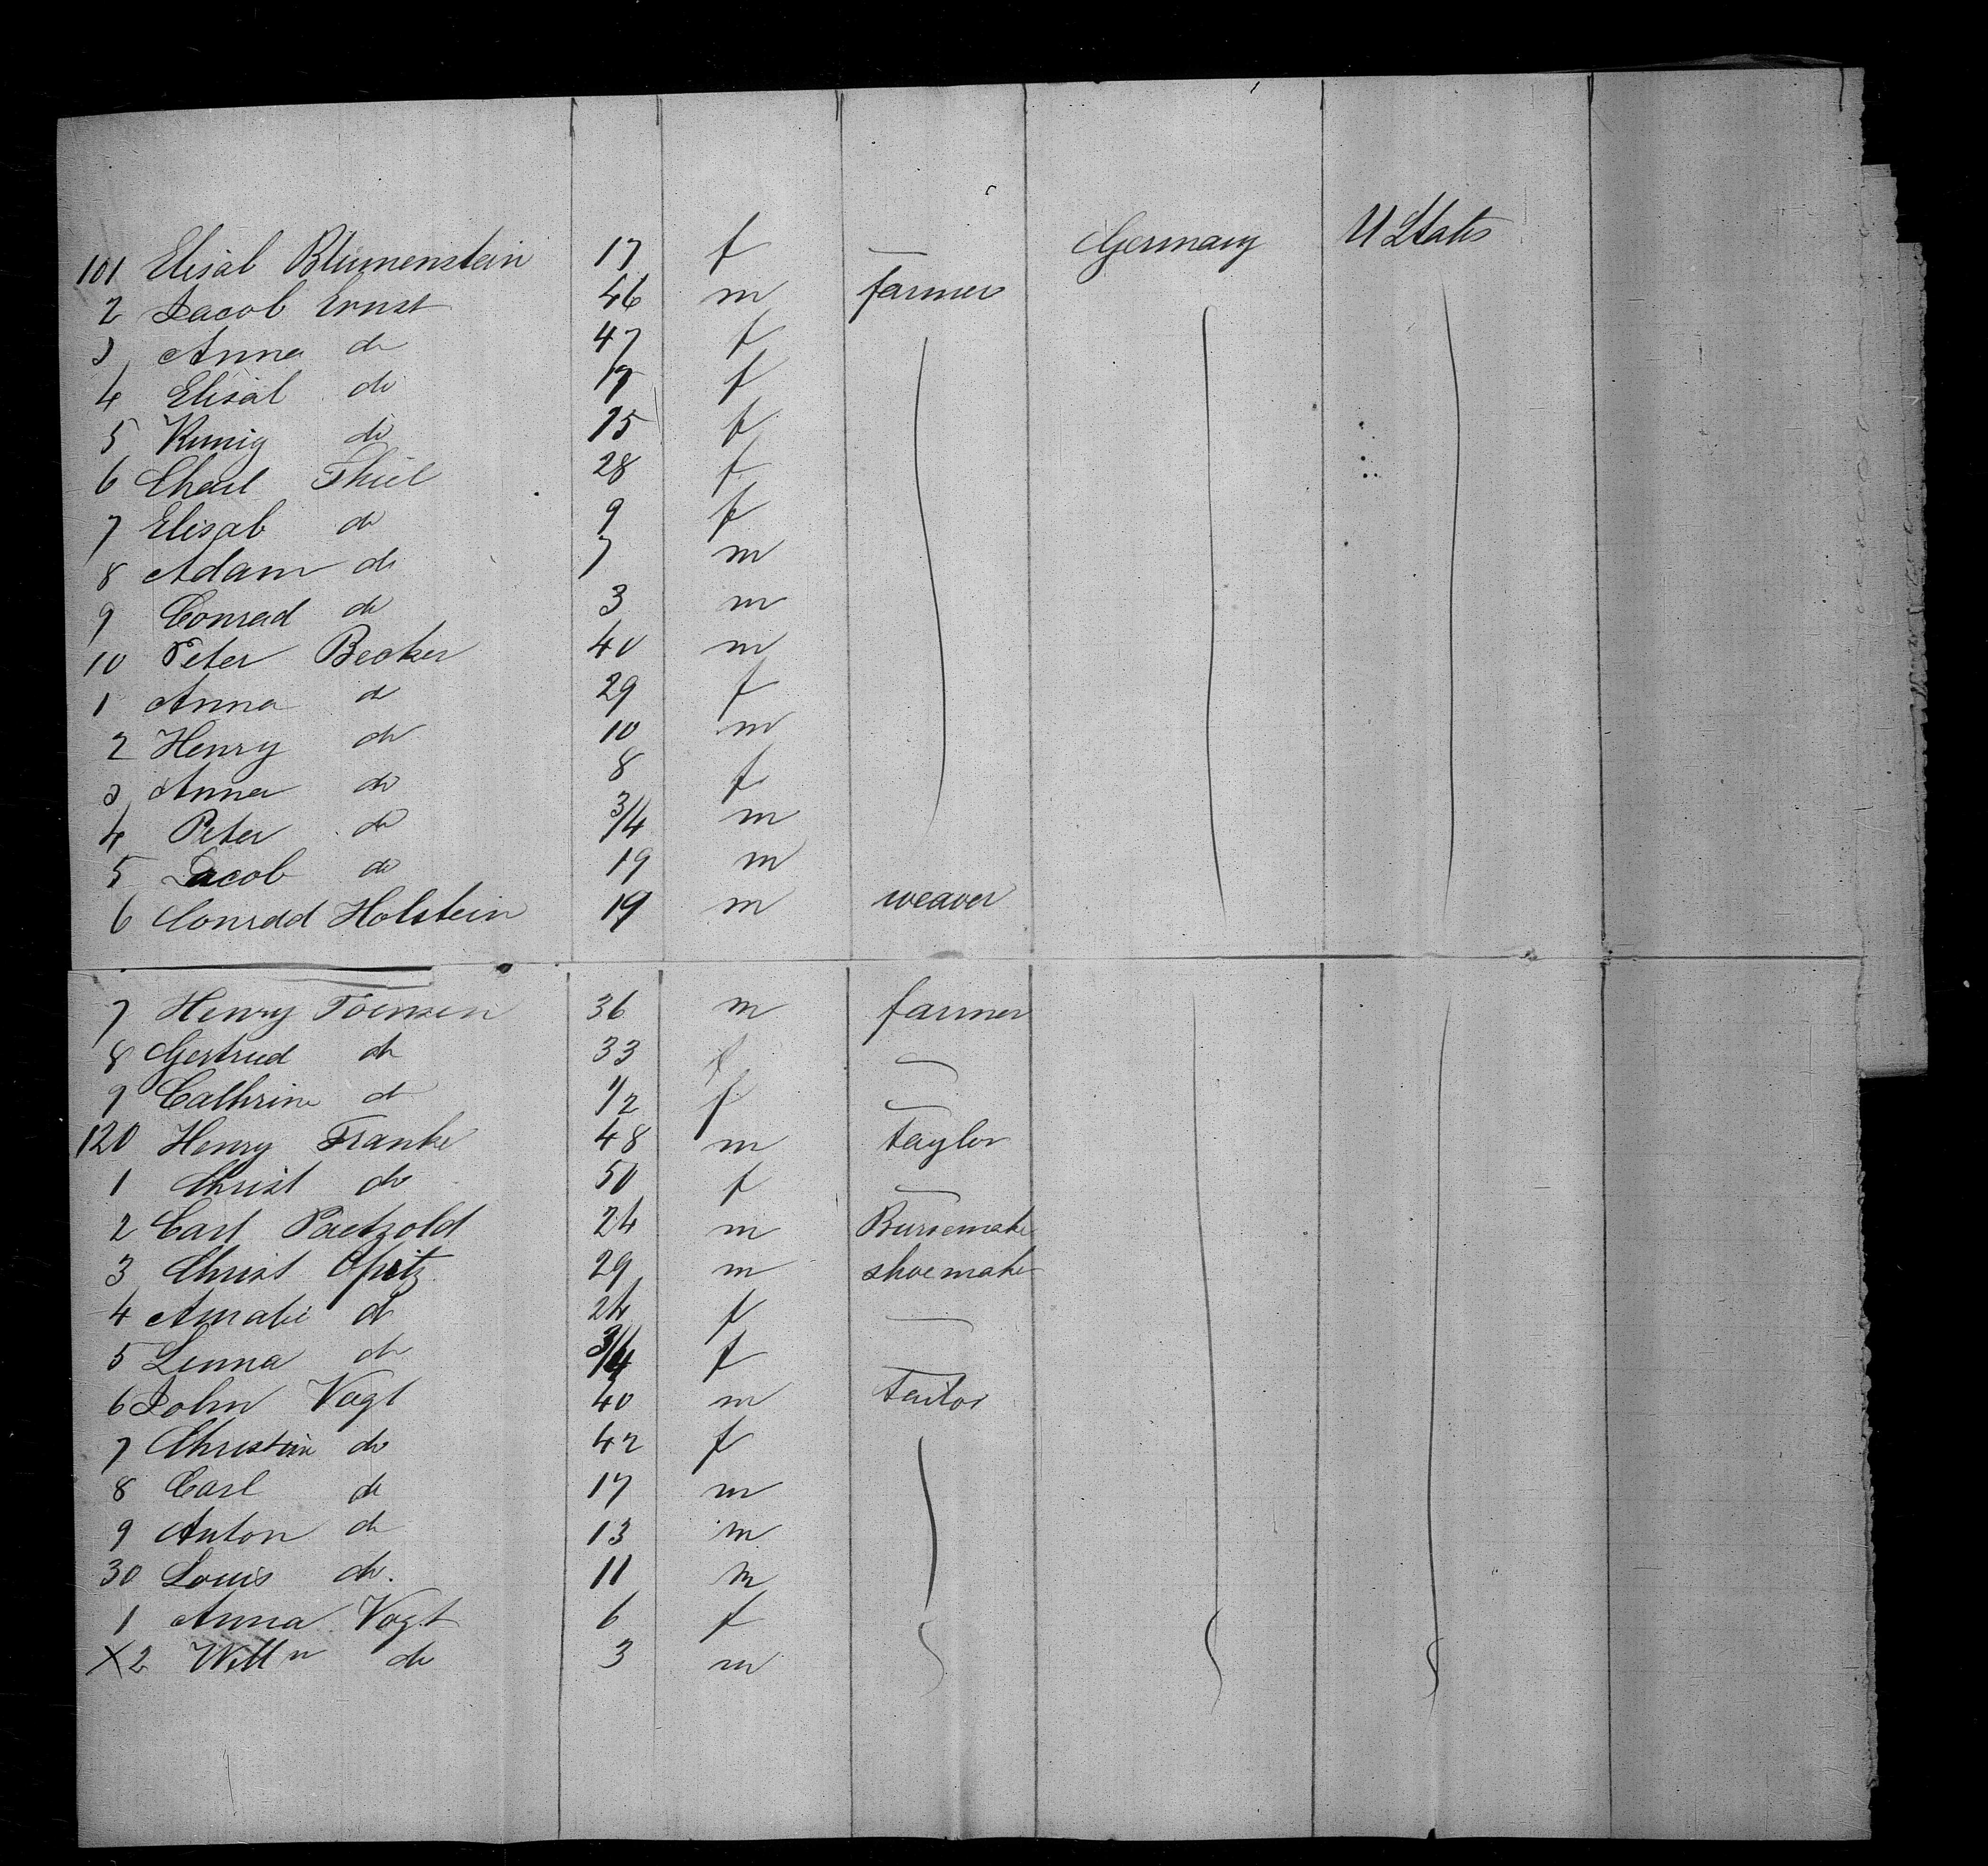 101 Elisab Blumenstein 17 f — Germany U States
2 Jacob Ernst 46 m farmer
3 Anna do 47 f
4 Elisab do 17 f
5 Kunig do 15 f
6 Thiel 28 f
7 Elisab do 9 f
8 Adam do 7 m
9 Conrad do 3 m
10 Peter Becker 40 m
1 Anna do 29 f
2 Henry do 10 m
3 Anna do 8 f
4 Peter do 3/4 m
5 Jacob do 19 m
6 Conrad Holstein 19 m weaver
7 Henry 36 m farmer
8 Gertrud do 33 f —
9 Cathrine do 1/2 f —
120 Henry Franke 48 m taylor
1 Christ do 50 f —
2 Carl Paetzold 24 m
3 Christ Opitz 29 m shoemake
4 Amalie do 24 f —
5 Linna do 3/4 f —
6 John Vogt 40 m tailor
7 Christin do 42 f
8 Carl do 17 m
9 Anton do 13 m
30 Louis do. 11 m
1 Anna Vogt 6 f
X2 Willm do 3 m